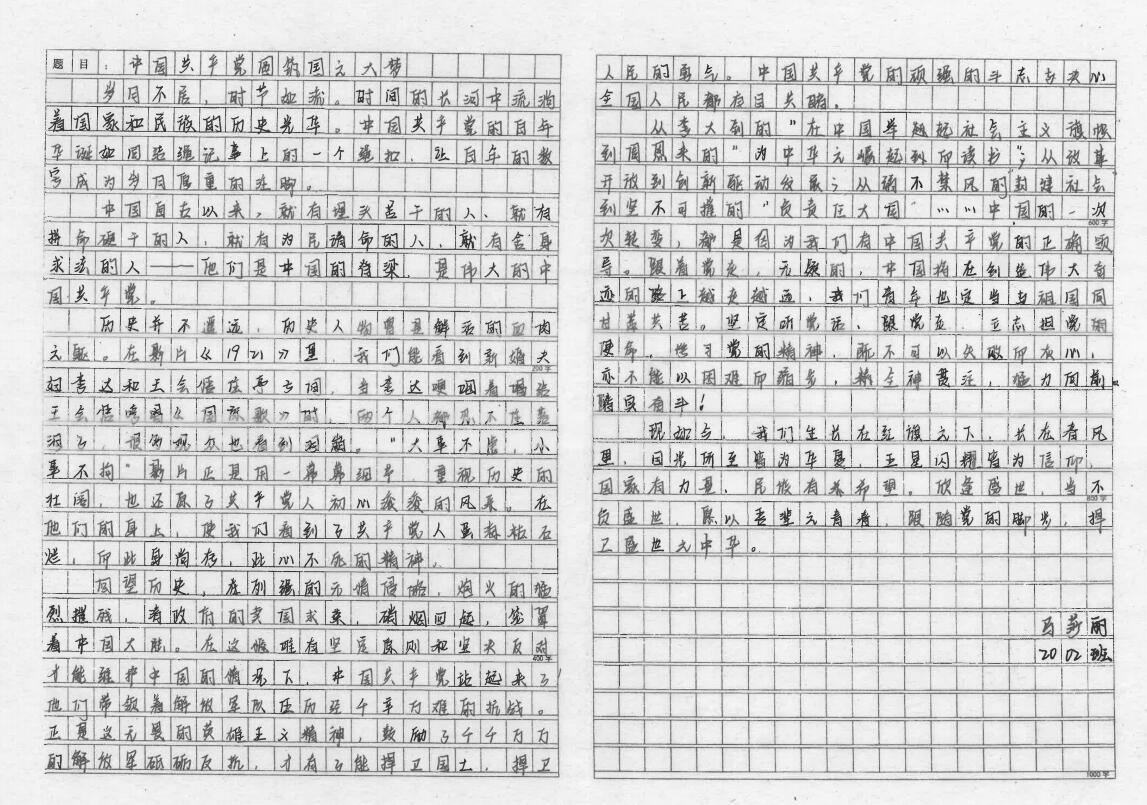 题目：中国共产党圆筑国之大梦
岁月不居，时节如流。时间的长河中流淌
着国家和民族的历史光华。中国共产党的百年
华诞如同结绳记事上的一个绳扣，让百年的数
字成为岁月厚重的注脚。
中国自古以来，就有埋头苦干的人、就有
拼命硬干的人，就有为民请命的人、就有舍身
求法的人——他们是中国的脊梁，是伟大的中
国共产党。
历史并不遥远，历史人物曾是鲜活的血肉
之躯。在影片《1921》里，我们能看到新婚夫
妇李达和王会悟在亭子间，当李达哽咽着唱给
王会悟听《国际歌》时，两个人都忍不住落
泪了，误的观众也看到泪崩。“大事不虚，小
事不拘”影片正是用一幕幕细节，重视历史的
壮阔，也还原了共产党人初心缓缓的风采。在
他们的身上，使我们看到了共产党人虽海枯石
烂，而此身尚存，此心不死的精神。
回望历史，在列强的无情侵略，炮火的猛
烈摧残，清政府的卖国求荣，硝烟四起，笼罩
着中国大陆。在这候唯有坚定原则和坚决反对
才能维护中国的情况下，中国共产党站起来了！
他们带领着解放军队伍历经千辛万难的抗战。
正是这无畏的英雄主义精神，鼓励了千千万万
的解放军砥砺反抗，才有了能捍卫国土，捍卫
人民的勇气。中国共产党的顽强的斗志与决心
全国人民都有目共睹。
从李大钊的“在中国举起社会主义旗帜”
到周恩来的“为中华之崛起到而读书”；从改革
开放到创新驱动发展；从弱不禁风的封建社会
到坚不可摧的“负责任大国”……中国的一次
次转变，都是因为我们有中国共产党的正确领
导。跟着党走，无疑的，中国将在创造伟大奇
迹的路上越走越远，我们青年也定当与祖国同
甘苦共苦。坚定听党话、跟党走，立志担党的
使命，学习党的精神，既不可以失败而灰心，
亦不能以困难而缩步，精全神贯注，猛力向前。
踏实奋斗！
现如今，我们生长在红旗之下，长在春风
里，目光所至皆为华夏，五星闪耀皆为信仰，
国家有力量，民族有希望。欣逢盛世，当不
负盛世，愿以吾辈之青春，跟随党的脚步，捍
卫盛世之中华。
马新丽
2002班
200字
400字
600字
800字
1000字